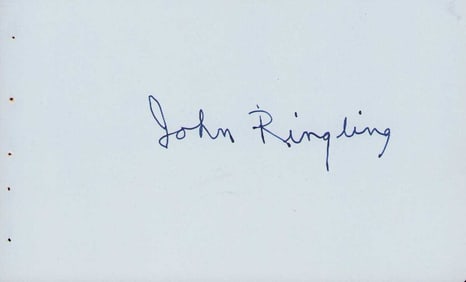 John Ringling